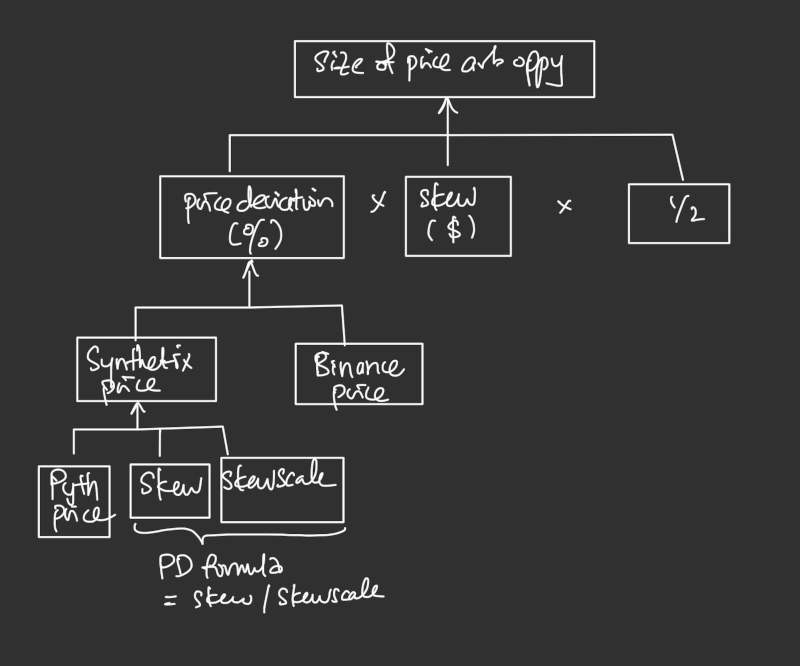 size of price arb oppy
price deviation
(%)
x
skew
($)
x
1/2
Synthetix
price
Binance
price
Pyth
price
Skew
skewscale
PD formula
= skew / skewscale